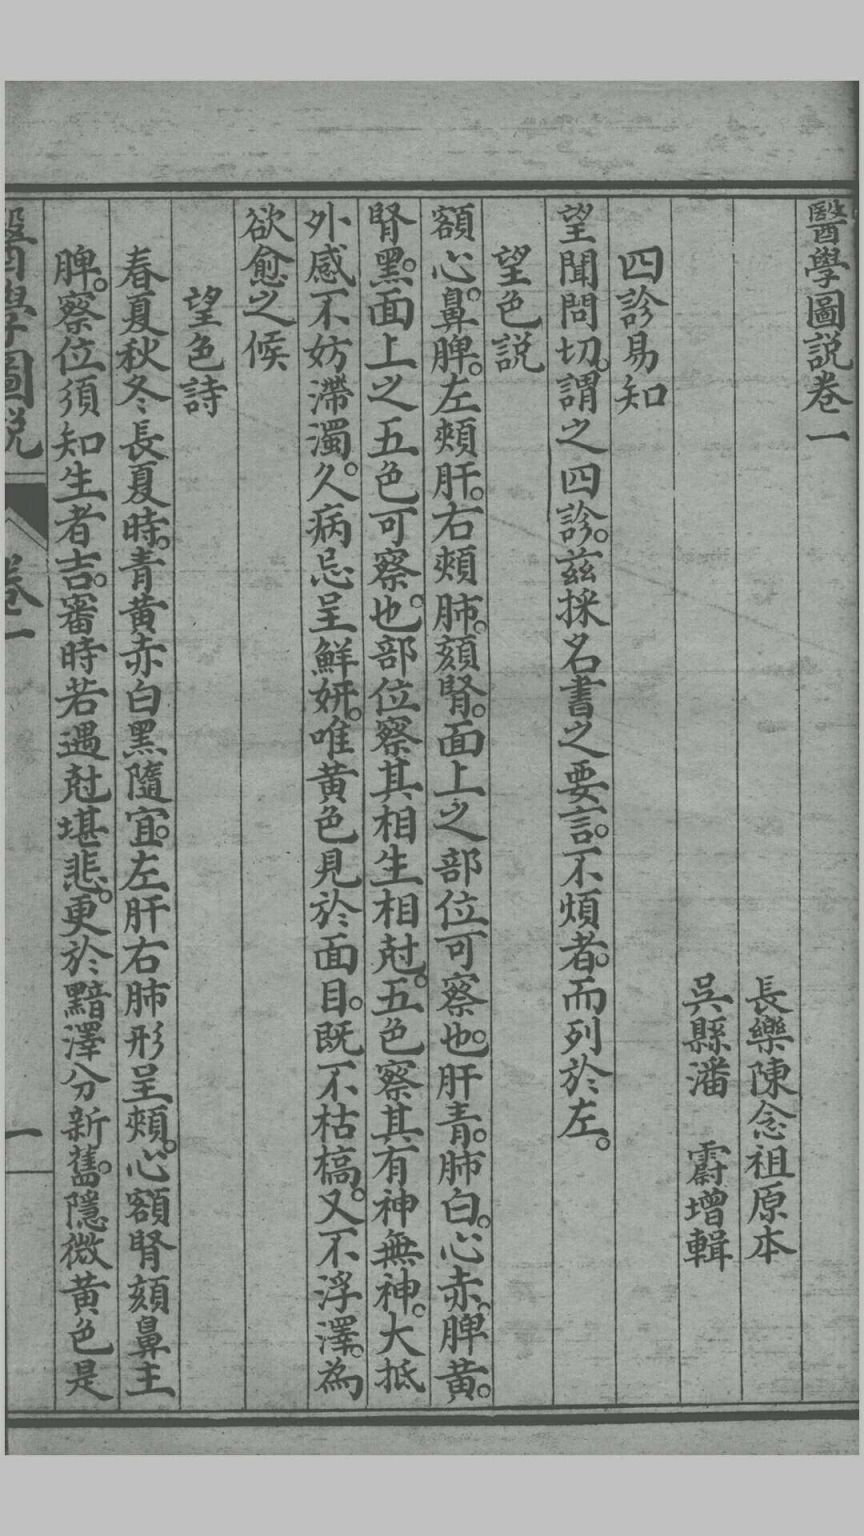 醫學圖説卷一
長樂陳念祖原本
吳縣潘　霨增輯
四診易知
望聞問切。謂之四診。茲採名書之要言。不煩者。而列於左。
望色説
額心。鼻脾。左頰肝。右頰肺。頦腎。面上之部位可察也。肝青。肺白。心赤。脾黃。
腎黑。面上之五色可察也。部位察其相生相尅。五色察其有神無神。大抵
外感不妨滯濁。久病忌呈鮮妍。唯黃色見於面目。既不枯槁。又不浮澤。為
欲愈之候
望色詩
春夏秋冬長夏時。青黃赤白黑隨宜。左肝右肺形呈頰。心額腎頦鼻主
脾。察位須知生者吉。審時若遇尅堪悲。更於黯澤分新舊。隱微黃色是
醫學圖説　卷一　一